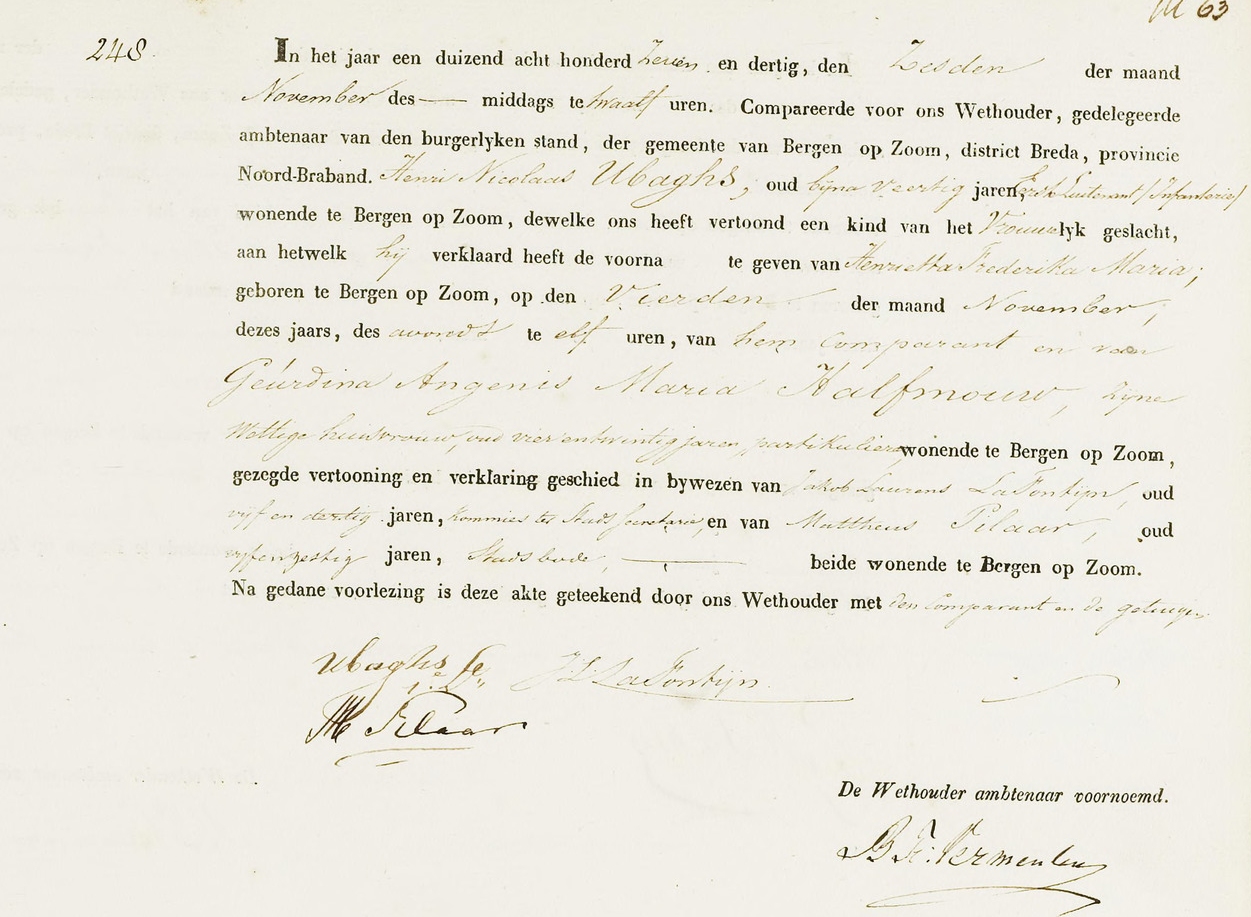 M 63
248.
In het jaar een duizend acht honderd Zeven en dertig, den Zesden der maand
November des — middags te twaalf uren. Compareerde voor ons Wethouder, gedelegeerde
ambtenaar van den burgerlyken stand, der gemeente van Bergen op Zoom, district Breda, provincie
Noord-Braband. Henri Nicolaas Ubaghs, oud bijna veertig jaren, Eerste Luitenant /Infanterie/
wonende te Bergen op Zoom, dewelke ons heeft vertoond een kind van het Vrouwlyk geslacht,
aan hetwelk hij verklaard heeft de voorna te geven van Henrietta Frederika Maria;
geboren te Bergen op Zoom, op den Vierden der maand November,
dezes jaars, des avonds te elf uren, van hem Comparant en van
Geurdina Angenis Maria Halfmouw, zijne
Wettige huisvrouw, oud vier entwintig jaren, partikuliere, wonende te Bergen op Zoom,
gezegde vertooning en verklaring geschied in bywezen van Jakob Laurens LaFontijn, oud
vijf en dertig jaren, Kommies ter Stads Secretarie, en van Mattheus Pilaar, oud
vyfenzestig jaren, Stadsbode, — beide wonende te Bergen op Zoom.
Na gedane voorlezing is deze akte geteekend door ons Wethouder met den Comparant en de getuigen
Ubaghs J L LaFontijn
M Pilaar
De Wethouder ambtenaar voornoemd.
B. F. Vermeulen